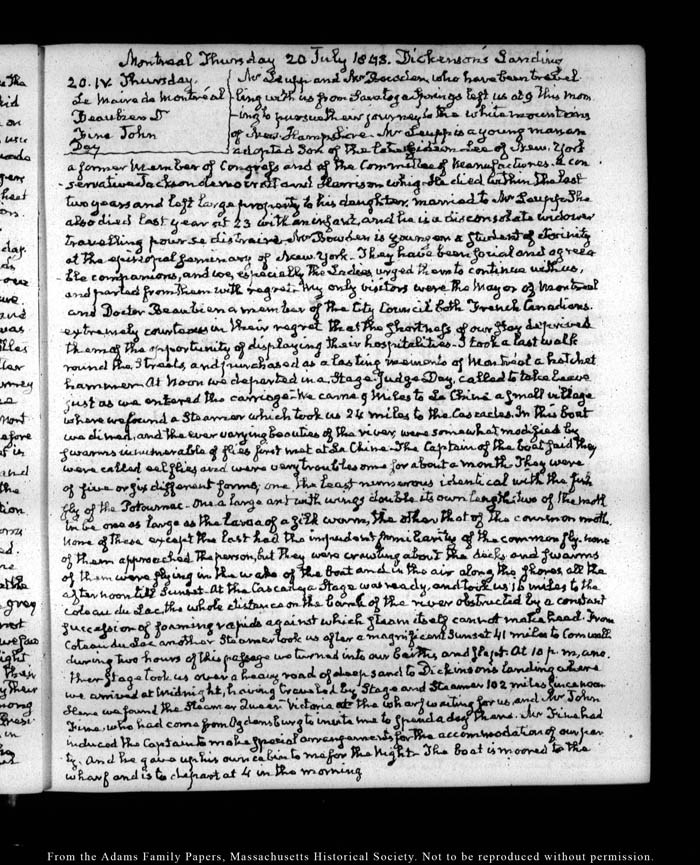 Montreal Thursday 20 July 1843. Dickenson's Landing
20. IV. Thursday.
Le Maire de Montréal
Beaubien D
Fine John
Day
Mr Leupp and Mr Bowden, who have been travel
ling with us from Saratoga Springs left us at 9 this mor
ning to pursue their journey to the white mountains
of New Hampshire. Mr Leupp is a young man an
adopted Son of the late Gideon Lee of New-York
a former Member of Congress and of the Committee of Manufactures. a con
servative Jackson democrat and Harrison whig. He died within the last
two years and left large property to his daughter, married to Mr Leupp. She
also died last year at 23 with an infant, and he is a disconsolate widower
travelling pour se distraire. Mr Bowden is younger a Student of divinity
at the episcopal seminary of New York. They have been social and agreea
ble companions, and we, especially the Ladies urged them to continue with us,
and parted from them with regret. My only visitors were the Mayor of Montreal
and Doctor Beaubien a member of the City Council both French Canadians.
extremely courteous in their regret that the shortness of our stay deprived
them of the opportunity of displaying their hospitalities. I took a last walk
round the Streets and purchased as a lasting memento of Montreal a hatchet
hammer. At Noon we departed in a Stage. Judge Day, called to take leave
just as we entered the carriage. We came 9 Miles to La Chine a small village
where we found a Steamer which took us 24 miles to the Cascades. In this boat
we dined, and the ever varying beauties of the river, were somewhat modified by
swarms innumerable of flies first met at La Chine. The Captain of the boat said they
were called eel flies and were very troublesome for about a month. They were
of five or six different forms; one the least numerous identical with the fire
fly of the Potowmac. One a large ant with wings double its own length: two of the moth
tribe one as large as the larva of a silk worm, the other that of the common moth.
None of these except the last had the impudent familiarity of the common fly. none
of them approached the person, but they were crawling about the decks and swarms
of them were flying in the wake of the boat and in the air along the shores, all the
afternoon till Sunset. At the Cascades a Stage was ready, and took us 16 miles to the
Coteau du Lac, the whole distance on the bank of the river obstructed by a constant
succession of foaming rapids against which steam itself cannot make head. From
Coteau du Lac another Steamer took us after a magnificent Sunset 41 miles to Cornwall
during two hours of this passage we turned into our berths and slept. At 10 p.m. ano-
ther Stage took us over a heavy road of deep sand to Dickinson's landing where
we arrived at Midnight, having traveled by Stage and Steamer 102 miles since noon
Here we found the Steamer Queen Victoria at the wharf waiting for us, and Mr John
Fine, who had come from Ogdensburg to invite me to spend a day there. Mr Fine had
induced the Captain to make special arrangements for the accommodation of our par
ty. And he gave up his own cabin to me for the Night. The boat is moored to the
wharf and is to depart at 4 in the morning
From the Adams Family Papers, Massachusetts Historical Society. Not to be reproduced without permission.